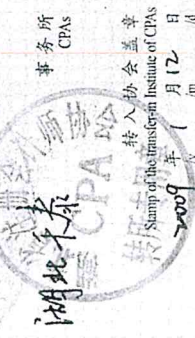 湖北
事务所
CPAs
CPA
转所专用章
转入协会盖章
Stamp of the transfer-in Institute of CPAs
2009年1月12日